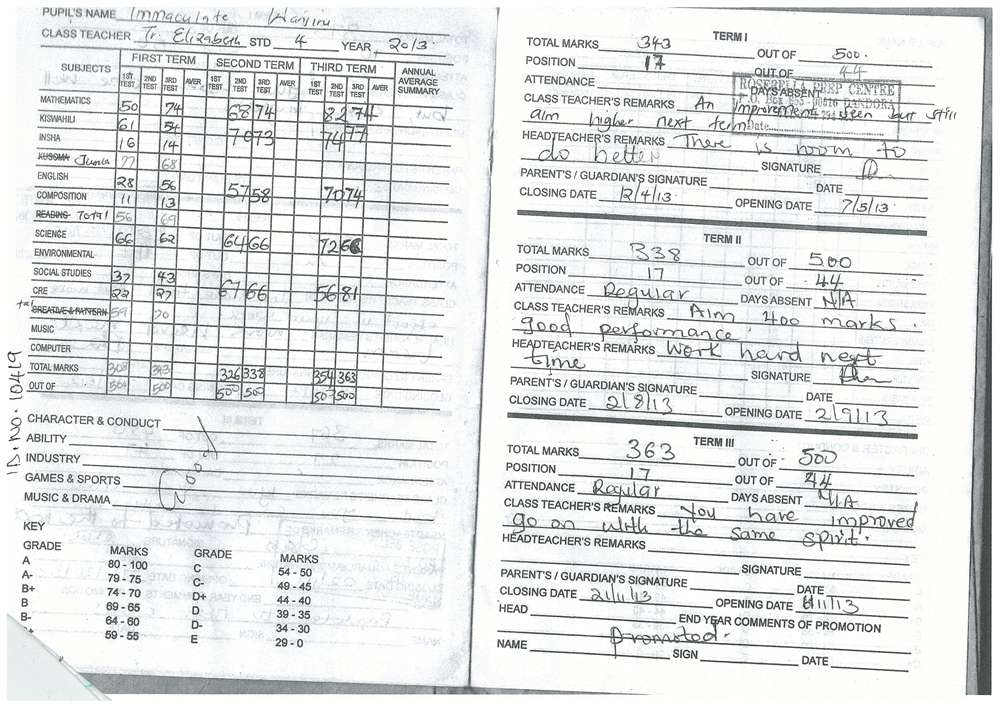 PUPIL'S NAME Immaculate Wanjiru
CLASS TEACHER Tr. Elizabeth STD 4 YEAR 2013.
SUBJECTS FIRST TERM SECOND TERM THIRD TERM ANNUAL AVERAGE SUMMARY
1ST TEST 2ND TEST 3RD TEST AVER 1ST TEST 2ND TEST 3RD TEST AVER 1ST TEST 2ND TEST 3RD TEST AVER
MATHEMATICS 50 74 68 74 82 74
KISWAHILI 61 54 70 73 74 77
INSHA 16 14
KUSOMA Jumla 77 68
ENGLISH 28 56 57 58 70 74
COMPOSITION 11 13
READING Total 56 69
SCIENCE 66 62 64 66 72
ENVIRONMENTAL
SOCIAL STUDIES 37 43 67 66 56 81
CRE 22 27
CREATIVE & PATTERN 59 70
MUSIC
COMPUTER
TOTAL MARKS 343 326 338 354 363
OUT OF 500 500 500 500 500
I.D. No. 10449
CHARACTER & CONDUCT
ABILITY
INDUSTRY
GAMES & SPORTS
MUSIC & DRAMA
Good
KEY
GRADE MARKS GRADE MARKS
A 80 - 100 C 54 - 50
A- 79 - 75 C- 49 - 45
B+ 74 - 70 D+ 44 - 40
B 69 - 65 D 39 - 35
B- 64 - 60 D- 34 - 30
+ 59 - 55 E 29 - 0
TERM I
TOTAL MARKS 343 OUT OF 500.
POSITION 17 OUT OF 44
ATTENDANCE DAYS ABSENT
ROSEBELLA PREP CENTRE
P.O. Box DANDORA
Date
CLASS TEACHER'S REMARKS An improvement seen but still
aim higher next term
HEADTEACHER'S REMARKS There is room to
do better SIGNATURE
PARENT'S / GUARDIAN'S SIGNATURE DATE
CLOSING DATE 12/4/13. OPENING DATE 7/5/13.
TERM II
TOTAL MARKS 338 OUT OF 500
POSITION 17 OUT OF 44
ATTENDANCE Regular DAYS ABSENT N/A
CLASS TEACHER'S REMARKS Aim 400 marks.
good performance.
HEADTEACHER'S REMARKS Work hard next
time SIGNATURE
PARENT'S / GUARDIAN'S SIGNATURE DATE
CLOSING DATE 2/8/13 OPENING DATE 2/9/13
TERM III
TOTAL MARKS 363 OUT OF 500
POSITION 17 OUT OF 44
ATTENDANCE Regular DAYS ABSENT N/A
CLASS TEACHER'S REMARKS You have improved
go on with the same spirit.
HEADTEACHER'S REMARKS
SIGNATURE
PARENT'S / GUARDIAN'S SIGNATURE DATE
CLOSING DATE 21/11/13 OPENING DATE
HEAD END YEAR COMMENTS OF PROMOTION
Promoted.
NAME SIGN DATE